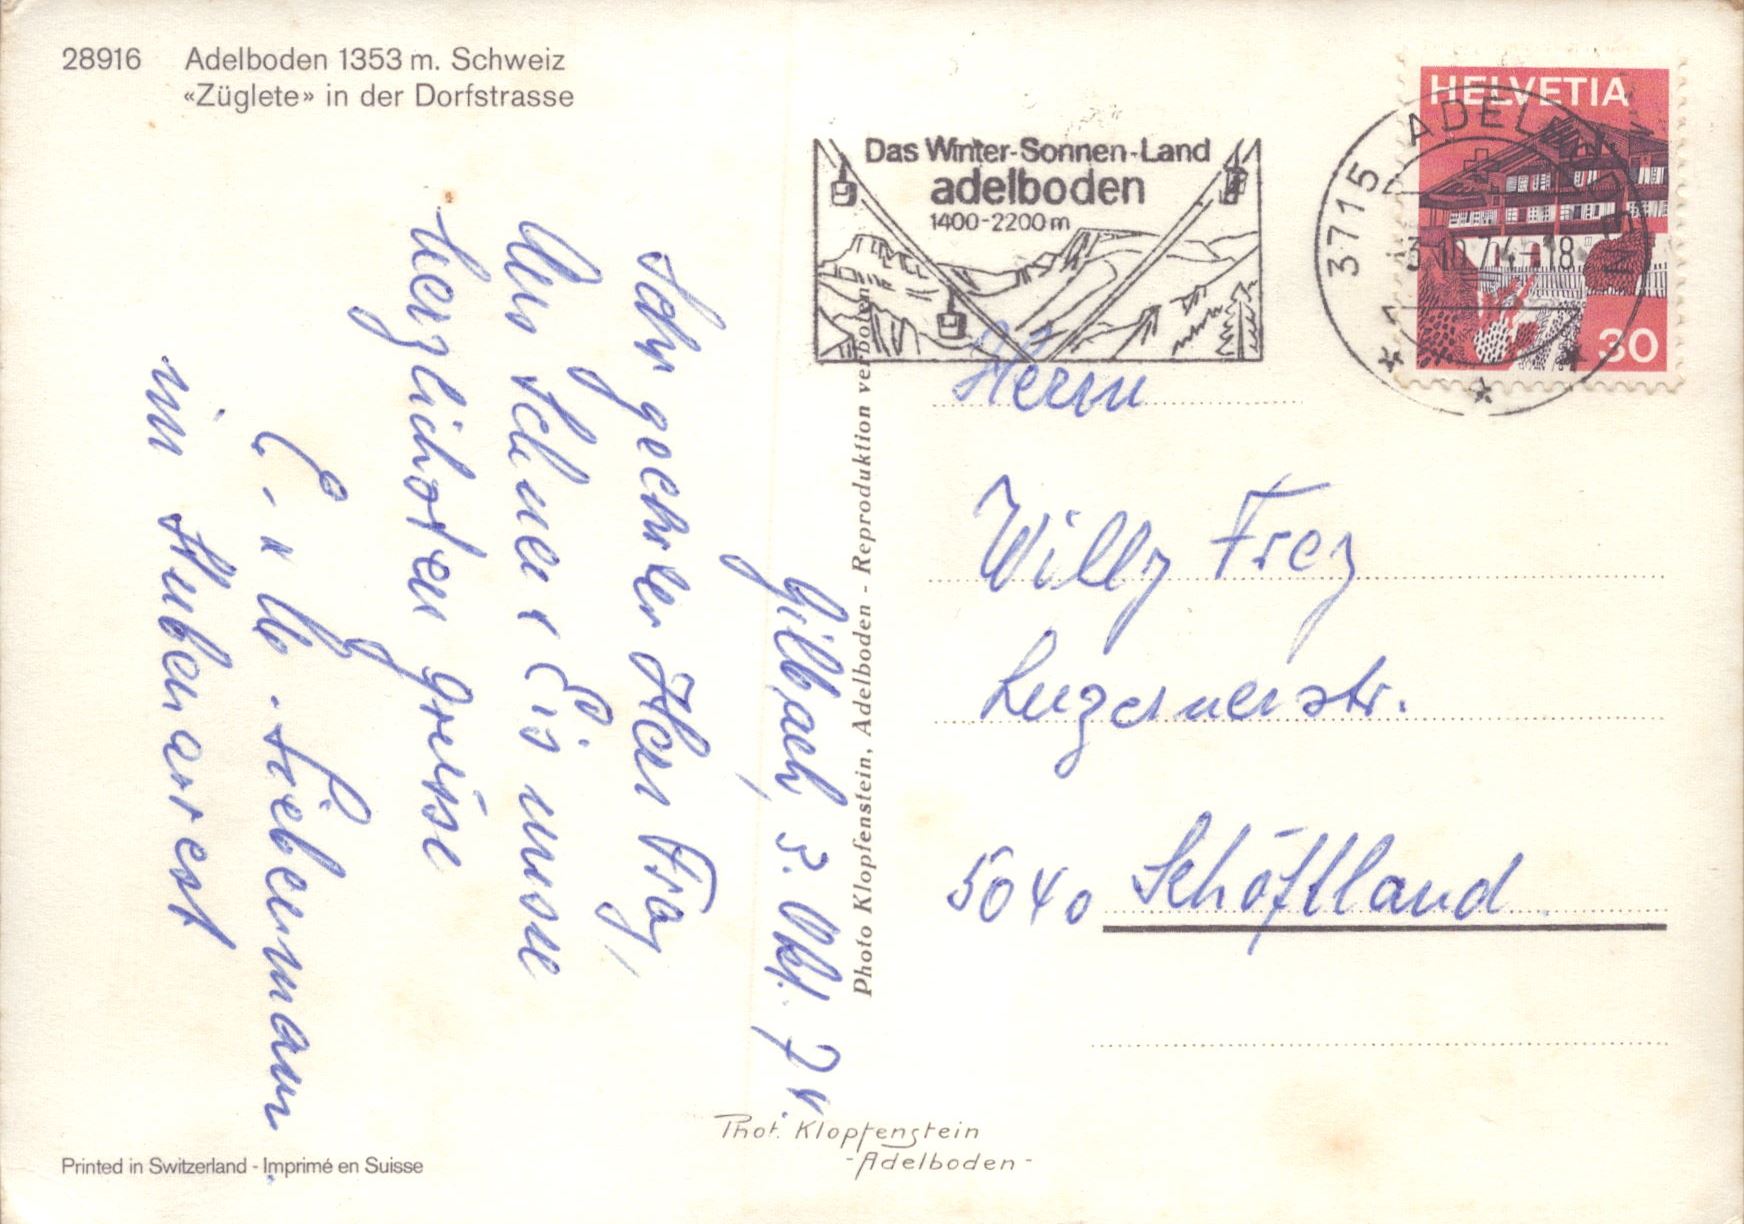 28916 Adelboden 1353 m. Schweiz
«Züglete» in der Dorfstrasse
Das Winter-Sonnen-Land
adelboden
1400-2200 m
3715 ADELBODEN
3.10.74-18
HELVETIA
30
Gilbach, 3. Okt. 74.
Sehr geehrter Herr Frey,
Aus Schnee & Eis
herzlichsten grüsse
E. u
im Stubenarrest
Herrn
Willy Frey
Luzernerstr.
5040 Schöftland
Photo Klopfenstein, Adelboden - Reproduktion verboten
Phot. Klopfenstein
-Adelboden-
Printed in Switzerland - Imprimé en Suisse